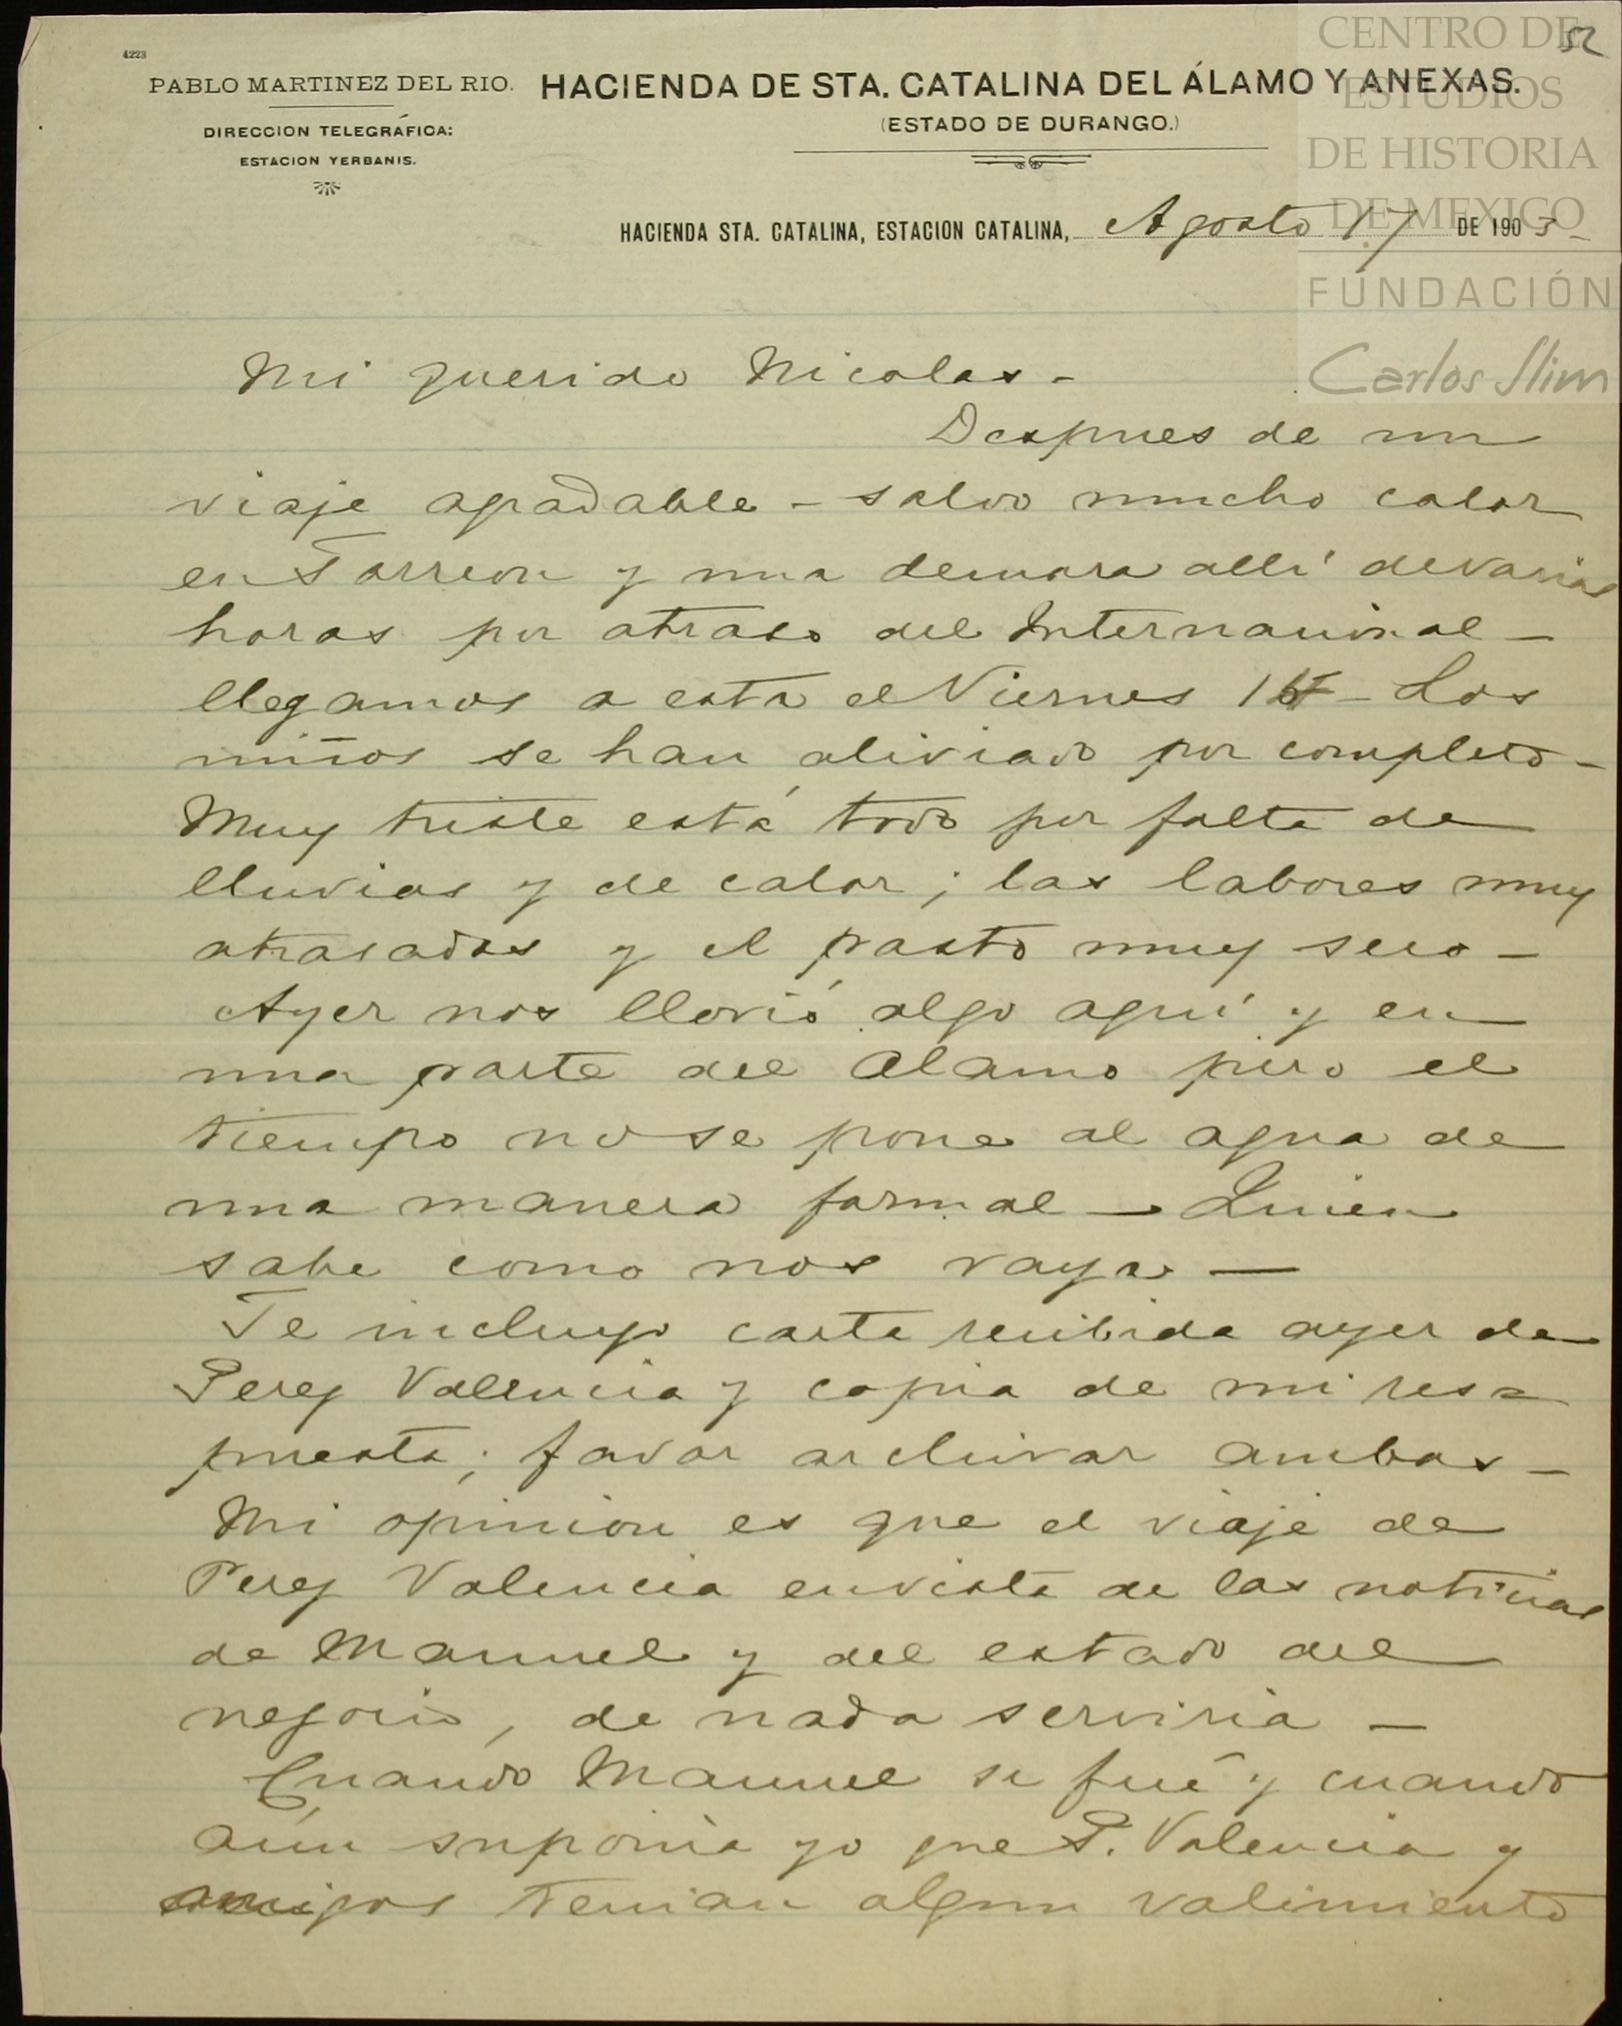 52
4223
PABLO MARTINEZ DEL RIO.
DIRECCION TELEGRÁFICA:
ESTACION YERBANIS.
HACIENDA DE STA. CATALINA DEL ÁLAMO Y ANEXAS.
(ESTADO DE DURANGO.)
HACIENDA STA. CATALINA, ESTACION CATALINA, Agosto 17 DE 1903
CENTRO DE
ESTUDIOS
DE HISTORIA
DE MEXICO
FUNDACIÓN
Carlos Slim
Mi querido Nicolas -
Despues de un
viaje agradable - salvo mucho calor
en Torreon y una demora allí de varias
horas por atraso del Internacional -
llegamos a esta el Viernes - Los
niños se han aliviado por completo -
Muy triste está todo por falta de
lluvias y de calor; las labores muy
atrasadas y el pasto muy seco -
Ayer nos llovió algo aquí y en
una parte del Alamo pero el
tiempo no se pone al agua de
una manera formal - Quien
sabe como nos vaya —
Te incluyo carta recibida ayer de
Perez Valencia y copia de mi res=
puesta; favor archivar ambas -
Mi opinion es que el viaje de
Perez Valencia en vista de las noticias
de Manuel y del estado del
negocio, de nada serviria —
Cuando Manuel se fué y cuando
aún suponia yo que P. Valencia y
amigos tenian algun valimiento